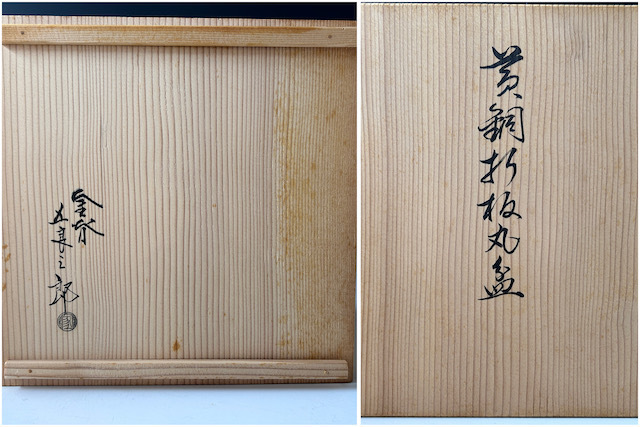 黄銅折板丸盆
金谷
五良三郎